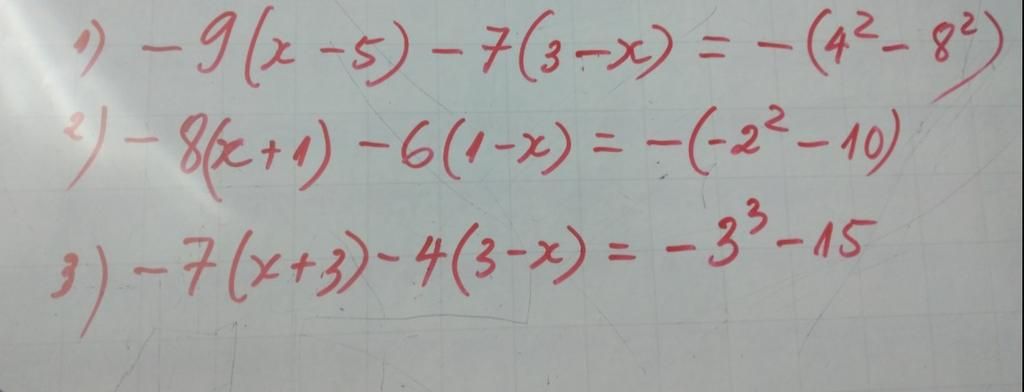 1) -9(x-5)-7(3-x) = -(4²-8²)
2) -8(x+1)-6(1-x) = -(-2²-10)
3) -7(x+3)-4(3-x) = -3³-15